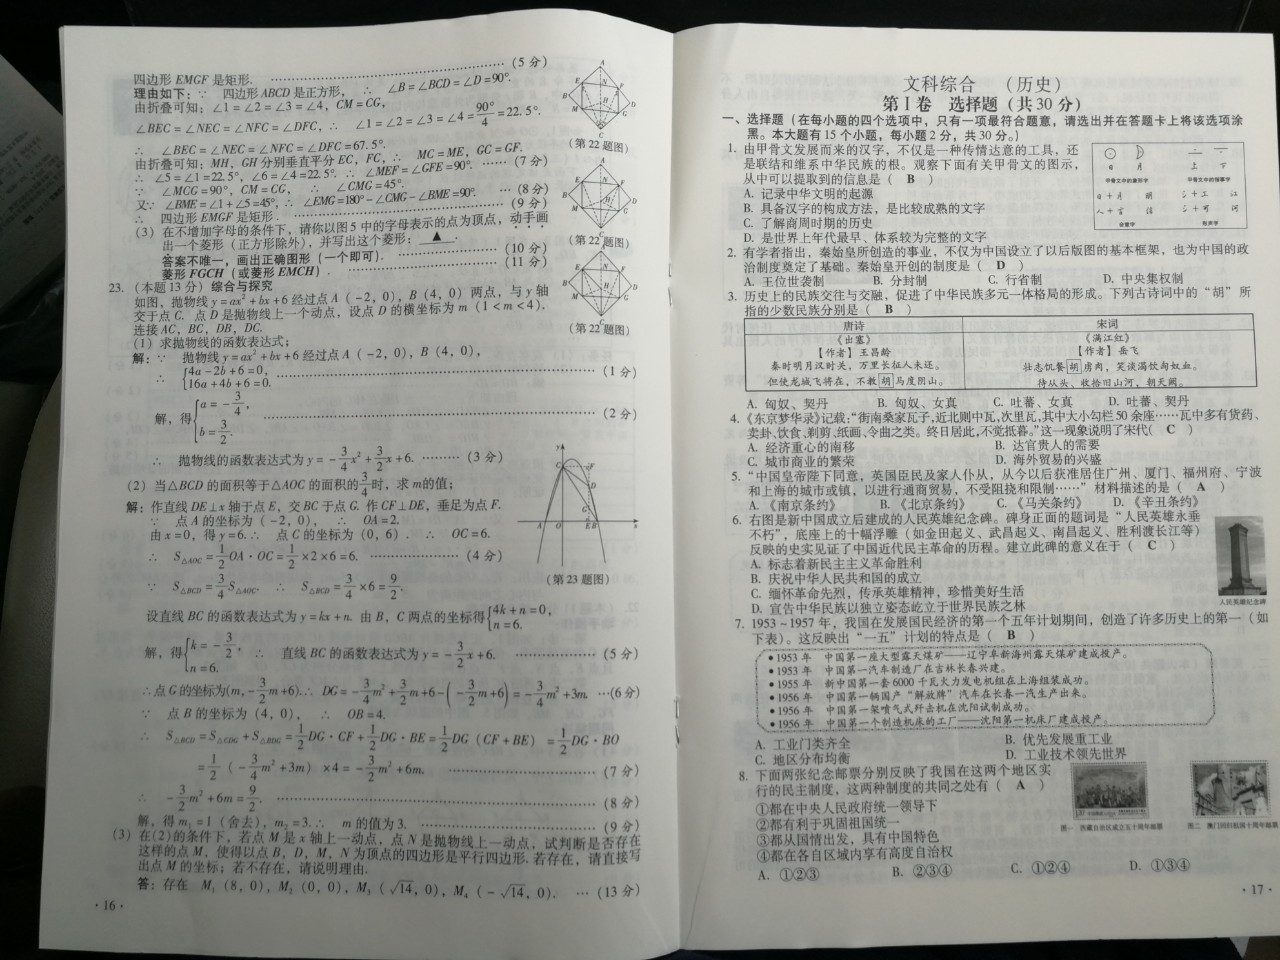 四边形 EMGF 是矩形. …… (5 分)
理由如下：∵ 四边形 ABCD 是正方形，∴ ∠B=∠BCD=∠D=90°.
由折叠可知：∠1=∠2=∠3=∠4，CM=CG，
∠BEC=∠NEC=∠NFC=∠DFC，∴ ∠1=∠2=∠3=∠4=90°/4=22.5°.
∴ ∠BEC=∠NEC=∠NFC=∠DFC=67.5°.
(第 22 题图)
由折叠可知：MH，GH 分别垂直平分 EC，FC，∴ MC=ME，GC=GF. …… (7 分)
∴ ∠5=∠1=22.5°，∠6=∠4=22.5°. ∴ ∠MEF=∠GFE=90°.
∵ ∠MCG=90°，CM=CG，∴ ∠CMG=45°.
又∵ ∠BME=∠1+∠5=45°，∴ ∠EMG=180°-∠CMG-∠BME=90°. … (8 分)
∴ 四边形 EMGF 是矩形. …… (9 分)
(3) 在不增加字母的条件下，请你以图 5 中的字母表示的点为顶点，动手画
出一个菱形（正方形除外），并写出这个菱形： ▲ .
(第 22 题图)
答案不唯一，画出正确图形（一个即可）. …… (10 分)
菱形 FGCH（或菱形 EMCH）. …… (11 分)
23. （本题 13 分）综合与探究
如图，抛物线 y=ax²+bx+6 经过点 A（-2，0），B（4，0）两点，与 y 轴
交于点 C. 点 D 是抛物线上一个动点，设点 D 的横坐标为 m（1<m<4）.
连接 AC，BC，DB，DC.
(第 22 题图)
(1) 求抛物线的函数表达式；
解：∵ 抛物线 y=ax²+bx+6 经过点 A（-2，0），B（4，0），
∴ {4a-2b+6=0， 16a+4b+6=0. …… (1 分)
解，得 {a=-3/4， b=3/2. …… (2 分)
∴ 抛物线的函数表达式为 y=-3/4x²+3/2x+6. …… (3 分)
(2) 当△BCD 的面积等于△AOC 的面积的3/4时，求 m 的值；
解：作直线 DE⊥x 轴于点 E，交 BC 于点 G. 作 CF⊥DE，垂足为点 F.
∵ 点 A 的坐标为（-2，0），∴ OA=2.
由 x=0，得 y=6. ∴ 点 C 的坐标为（0，6）. ∴ OC=6.
∴ S△AOC=1/2OA·OC=1/2×2×6=6. …… (4 分)
∵ S△BCD=3/4S△AOC. ∴ S△BCD=3/4×6=9/2.
(第 23 题图)
设直线 BC 的函数表达式为 y=kx+n. 由 B，C 两点的坐标得 {4k+n=0， n=6.
解，得 {k=-3/2， n=6. ∴ 直线 BC 的函数表达式为 y=-3/2x+6. …… (5 分)
∴点 G 的坐标为(m，-3/2m+6). ∴ DG=-3/4m²+3/2m+6-(-3/2m+6)=-3/4m²+3m. …(6 分)
∵ 点 B 的坐标为（4，0），∴ OB=4.
∴ S△BCD=S△CDG+S△BDG=1/2DG·CF+1/2DG·BE=1/2DG（CF+BE）=1/2DG·BO
=1/2（-3/4m²+3m）×4=-3/2m²+6m. …… (7 分)
∴ -3/2m²+6m=9/2. …… (8 分)
解，得 m₁=1（舍去），m₂=3. ∴ m 的值为 3. …… (9 分)
(3) 在(2)的条件下，若点 M 是 x 轴上一动点，点 N 是抛物线上一动点，试判断是否存在
这样的点 M，使得以点 B，D，M，N 为顶点的四边形是平行四边形. 若存在，请直接写
出点 M 的坐标；若不存在，请说明理由.
答：存在 M₁（8，0），M₂（0，0），M₃（√14，0），M₄（-√14，0）. … (13 分)
·16·
文科综合 （历史）
第Ⅰ卷 选择题（共 30 分）
一、选择题（在每小题的四个选项中，只有一项最符合题意，请选出并在答题卡上将该选项涂
黑。本大题有 15 个小题，每小题 2 分，共 30 分。）
1. 由甲骨文发展而来的汉字，不仅是一种传情达意的工具，还
是联结和维系中华民族的根。观察下面有关甲骨文的图示，
从中可以提取到的信息是（ B ）
A. 记录中华文明的起源
B. 具备汉字的构成方法，是比较成熟的文字
C. 了解商周时期的历史
D. 是世界上年代最早、体系较为完整的文字
日 月 上 下
甲骨文中的象形字 甲骨文中的指事字
日+月 明 氵+工 江
人+言 信 氵+可 河
会意字 形声字
2. 有学者指出，秦始皇所创造的事业，不仅为中国设立了以后版图的基本框架，也为中国的政
治制度奠定了基础。秦始皇开创的制度是（ D ）
A. 王位世袭制 B. 分封制 C. 行省制 D. 中央集权制
3. 历史上的民族交往与交融，促进了中华民族多元一体格局的形成。下列古诗词中的“胡”所
指的少数民族分别是（ B ）
唐诗 宋词
《出塞》 《满江红》
【作者】王昌龄 【作者】岳飞
秦时明月汉时关，万里长征人未还。 壮志饥餐胡虏肉，笑谈渴饮匈奴血。
但使龙城飞将在，不教胡马度阴山。 待从头、收拾旧山河，朝天阙。
A. 匈奴、契丹 B. 匈奴、女真 C. 吐蕃、女真 D. 吐蕃、契丹
4. 《东京梦华录》记载：“街南桑家瓦子，近北则中瓦，次里瓦，其中大小勾栏 50 余座……瓦中多有货药、
卖卦、饮食、剃剪、纸画、令曲之类。终日居此，不觉抵暮。”这一现象说明了宋代（ C ）
A. 经济重心的南移 B. 达官贵人的需要
C. 城市商业的繁荣 D. 海外贸易的兴盛
5. “中国皇帝陛下同意，英国臣民及家人仆从，从今以后获准居住广州、厦门、福州府、宁波
和上海的城市或镇，以进行通商贸易，不受阻挠和限制……”材料描述的是（ A ）
A. 《南京条约》 B. 《北京条约》 C. 《马关条约》 D. 《辛丑条约》
6. 右图是新中国成立后建成的人民英雄纪念碑。碑身正面的题词是“人民英雄永垂
不朽”，底座上的十幅浮雕（如金田起义、武昌起义、南昌起义、胜利渡长江等）
反映的史实见证了中国近代民主革命的历程。建立此碑的意义在于（ C ）
A. 标志着新民主主义革命胜利
B. 庆祝中华人民共和国的成立
C. 缅怀革命先烈，传承英雄精神，珍惜美好生活
D. 宣告中华民族以独立姿态屹立于世界民族之林
人民英雄纪念碑
7. 1953～1957 年，我国在发展国民经济的第一个五年计划期间，创造了许多历史上的第一（如
下表）。这反映出“一五”计划的特点是（ B ）
•1953 年 中国第一座大型露天煤矿——辽宁阜新海州露天煤矿建成投产。
•1953 年 中国第一汽车制造厂在吉林长春兴建。
•1955 年 新中国第一套 6000 千瓦火力发电机组在上海组装成功。
•1956 年 中国第一辆国产“解放牌”汽车在长春一汽生产出来。
•1956 年 中国第一架喷气式歼击机在沈阳试制成功。
•1956 年 中国第一个制造机床的工厂——沈阳第一机床厂建成投产。
A. 工业门类齐全 B. 优先发展重工业
C. 地区分布均衡 D. 工业技术领先世界
8. 下面两张纪念邮票分别反映了我国在这两个地区实
行的民主制度，这两种制度的共同之处有（ A ）
①都在中央人民政府统一领导下
②都有利于巩固祖国统一
③都从国情出发，具有中国特色
④都在各自区域内享有高度自治权
图一 西藏自治区成立五十周年邮票 图二 澳门回归祖国十周年邮票
A. ①②③ B. ②③④ C. ①②④ D. ①③④
·17·